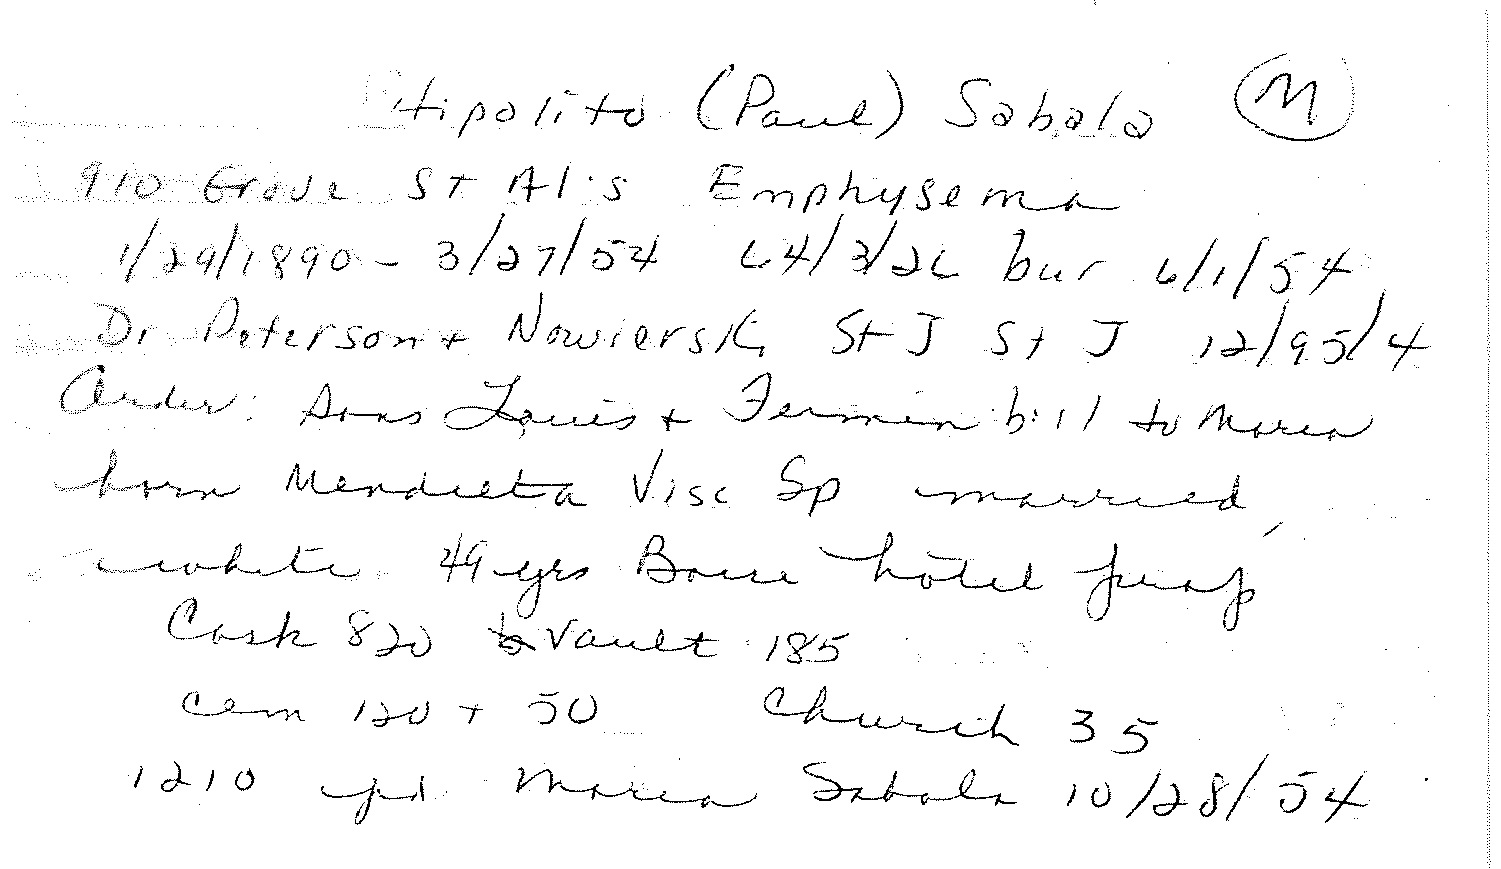 Hipolito (Paul) Sabala M
910 Grove St Al's Emphysema
1/29/1890 - 3/27/54 64/3/26 bur 6/1/54
Dr Peterson + Nowierski St J St J 12/95/4
Order: Sons Louis + Fermin bill to Maria
born Mendieta Visc Sp married,
white 49 yrs Boise hotel prop
Cask 820 Vault 185
cem 120 + 50 Church 35
1210 pd Maria Sabala 10/28/54